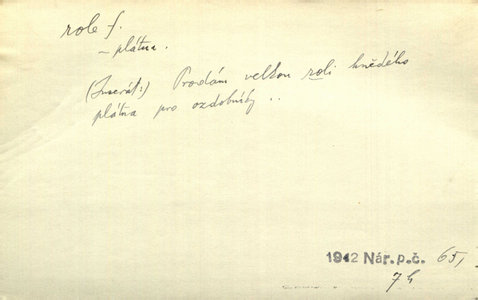 role f.
– plátna.
(Inserát:) Prodám velkou roli hnědého
plátna pro ozdobníky ..
1942 Nár.p.č. 65,
7 b